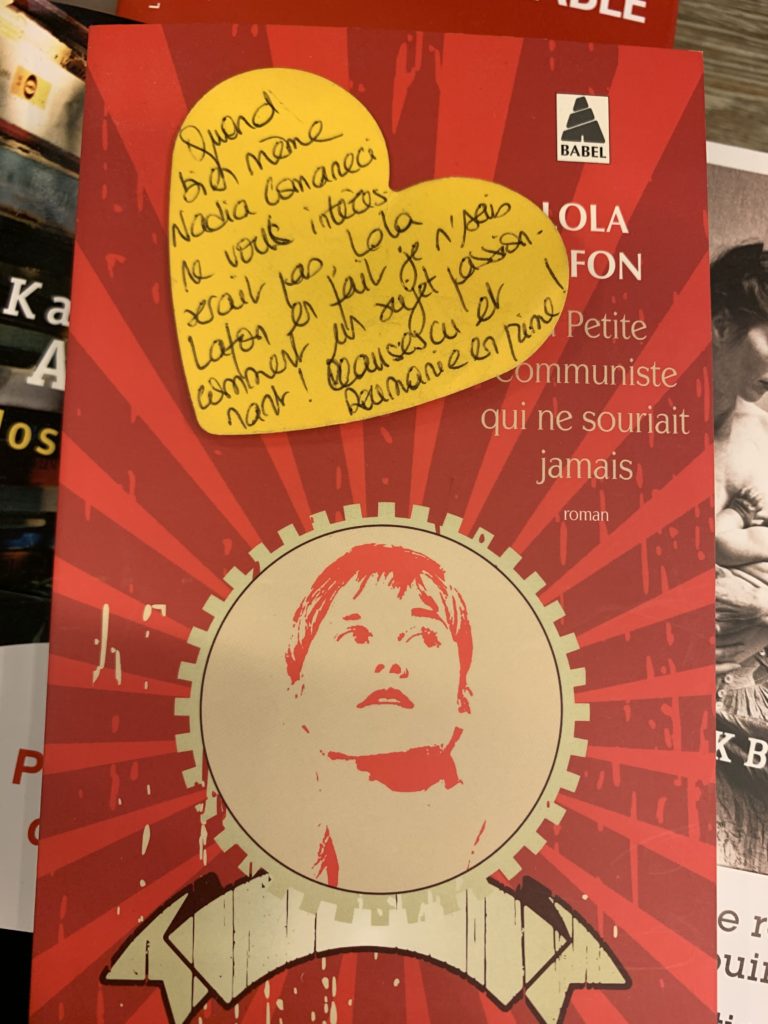 ABLE
BABEL
Quand
bien même
Nadia Comaneci
ne vous intéres-
serait pas, Lola
Lafon en fait je n'sais
comment un sujet passion-
nant ! Ceausescu et
Roumanie en prime !
LOLA
FON
Petite
communiste
qui ne souriait
jamais
roman
Ka
A
los
P
K B
e r
ouir